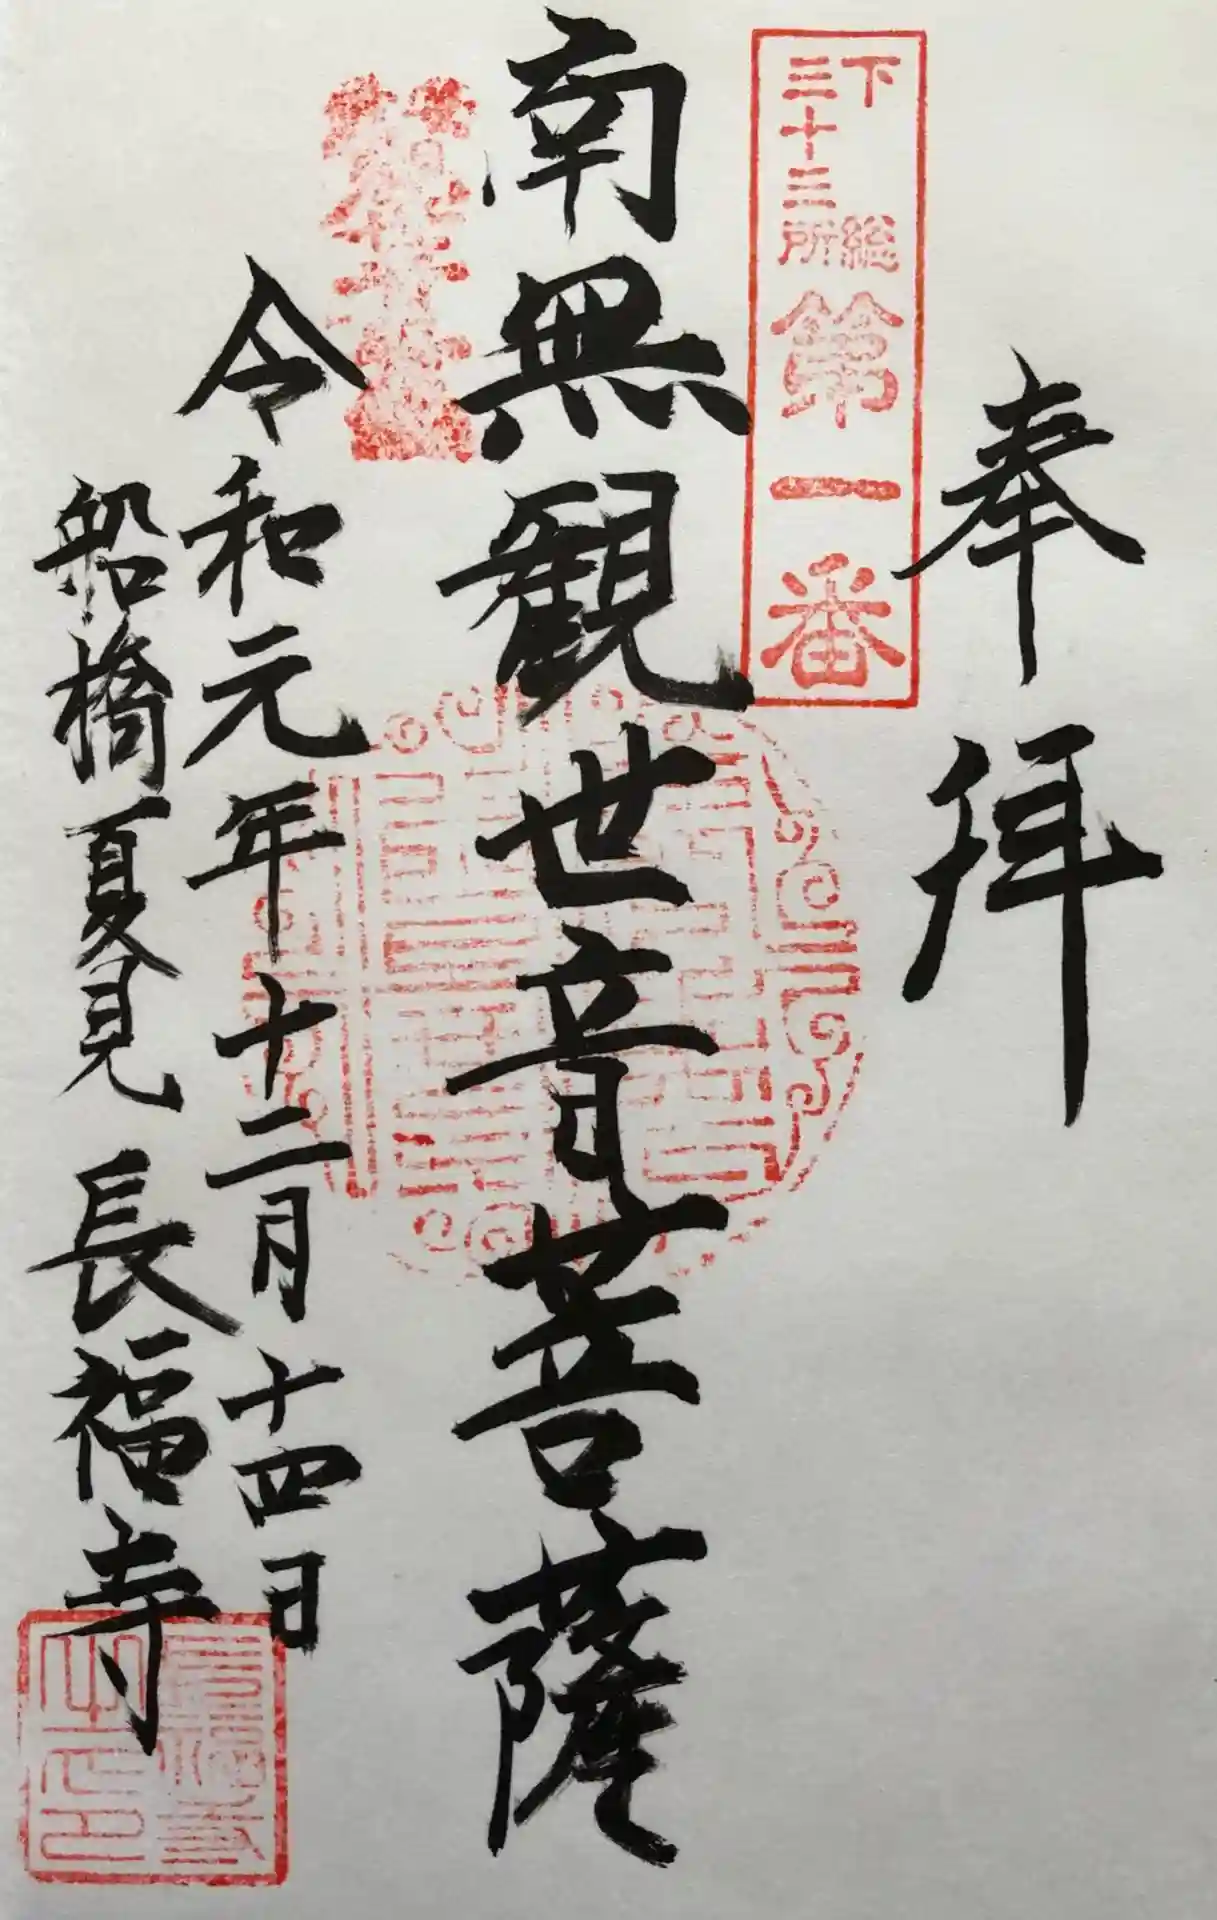 奉拝
下総
三十三所
第一番
南無観世音菩薩
令和元年十二月十四日
船橋夏見 長福寺
長福寺
之印